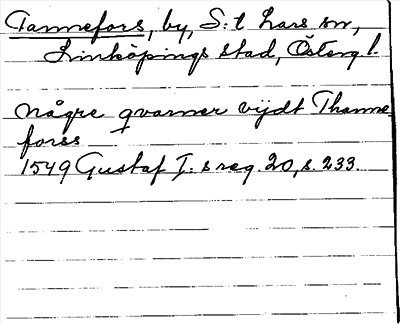 Tannefors, by, S:t Lars sn,
Linköpings stad, Österg l.
någre qvarner vijdt Thanne
forss
1549 Gustaf I:s reg. 20, s. 233.